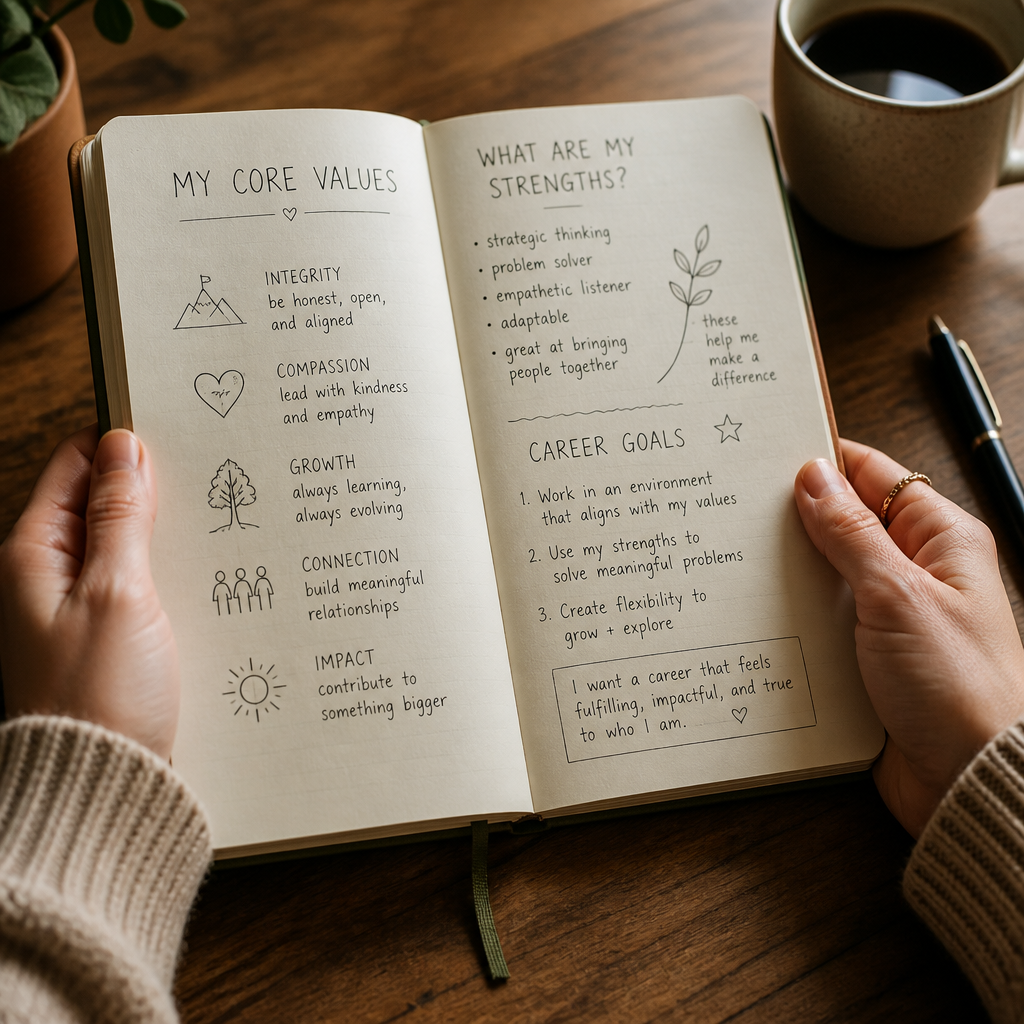 MY CORE VALUES
INTEGRITY
be honest, open,
and aligned
COMPASSION
lead with kindness
and empathy
GROWTH
always learning,
always evolving
CONNECTION
build meaningful
relationships
IMPACT
contribute to
something bigger
WHAT ARE MY
STRENGTHS?
• strategic thinking
• problem solver
• empathetic listener
• adaptable
• great at bringing
people together
these
help me
make a
difference
CAREER GOALS
1. Work in an environment
that aligns with my values
2. Use my strengths to
solve meaningful problems
3. Create flexibility to
grow + explore
I want a career that feels
fulfilling, impactful, and true
to who I am.